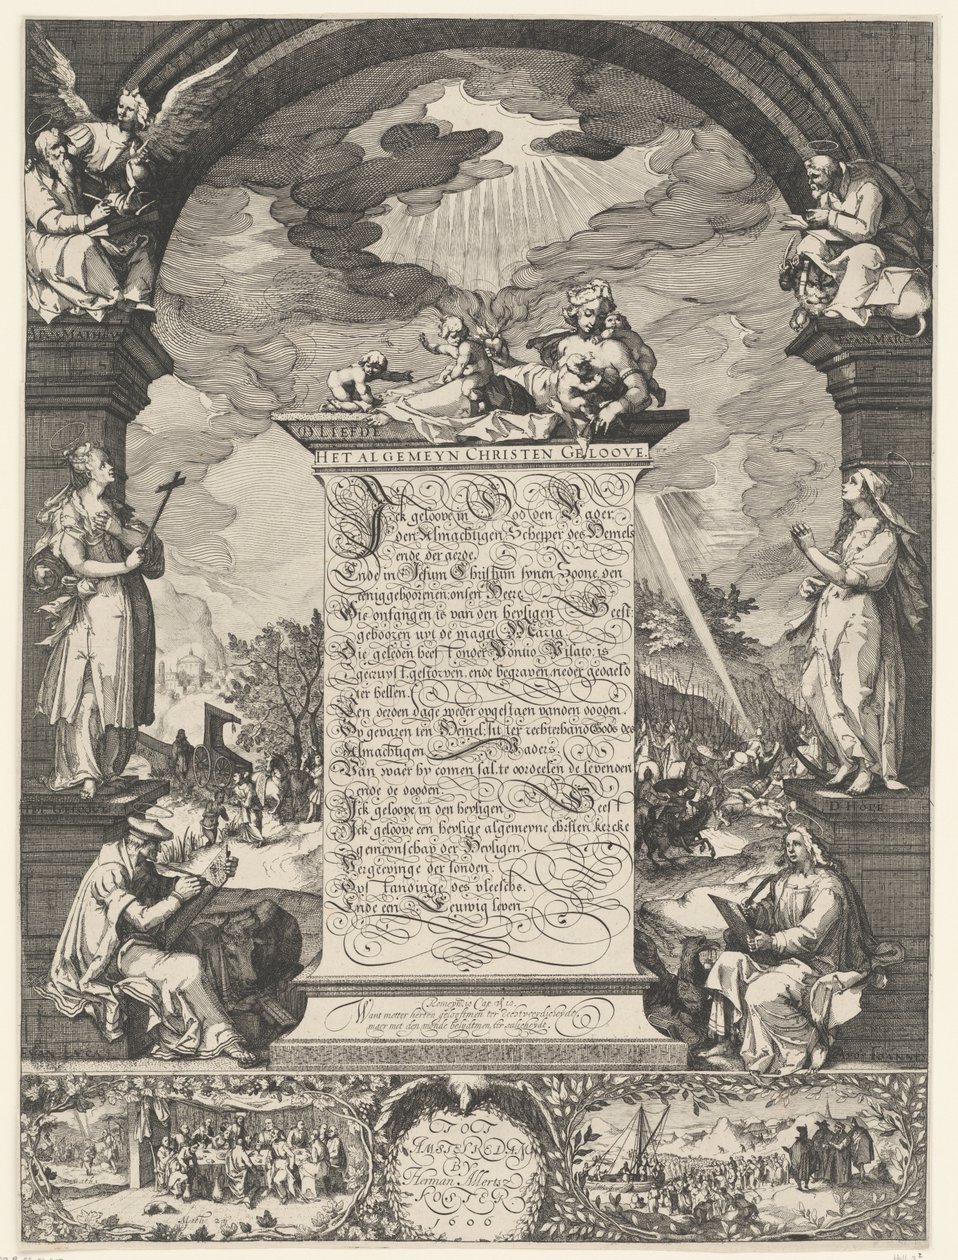 D LIEFDE
HET ALGEMEYN CHRISTEN GELOOVE.
Ick geloove in God den Vader
den Almachtigen Schepper des Hemels
ende der aerde.
Ende in Jesum Christum synen Zoone, den
eeniggeboornen, onsen Heere
Die onfangen is van den heyligen Geest
gebooren uyt de maget Maria
Die geleden heeft onder Pontio Pilato: is
gecruyst, gestorven, ende begraven, neder gedaeld
ter hellen.
Ten derden dage weder opgestaen vanden dooden.
Op gevaren ten Hemel: sit ter rechterhand Gods des
Almachtigen Vaders.
Van waer hy comen sal, te oordeelen de levenden
ende de dooden.
Ick geloove in den heyligen Geest
Ick geloove een heylige algemeyne christen kercke
gemeynschap der Heyligen.
Vergevinge der sonden.
Opstandinge des vleeschs.
Ende een Eeuwig leven.
Romeyn: 10 Cap. 10.
Want metter herten gelooftmen ter rechtveerdicheyde,
maer met den monde belijdtmen ter salicheyde.
D HOPE
TOT
AMSTELREDAM
BY
Herman Allerts Z
KOSTER
1606
Math: 22